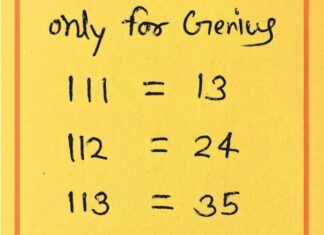 only for Genius
111 = 13
112 = 24
113 = 35